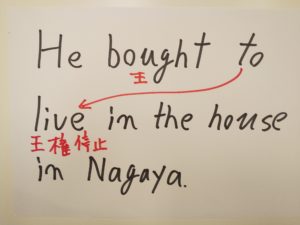 He bought to
王
live in the house
王権停止
in Nagaya.